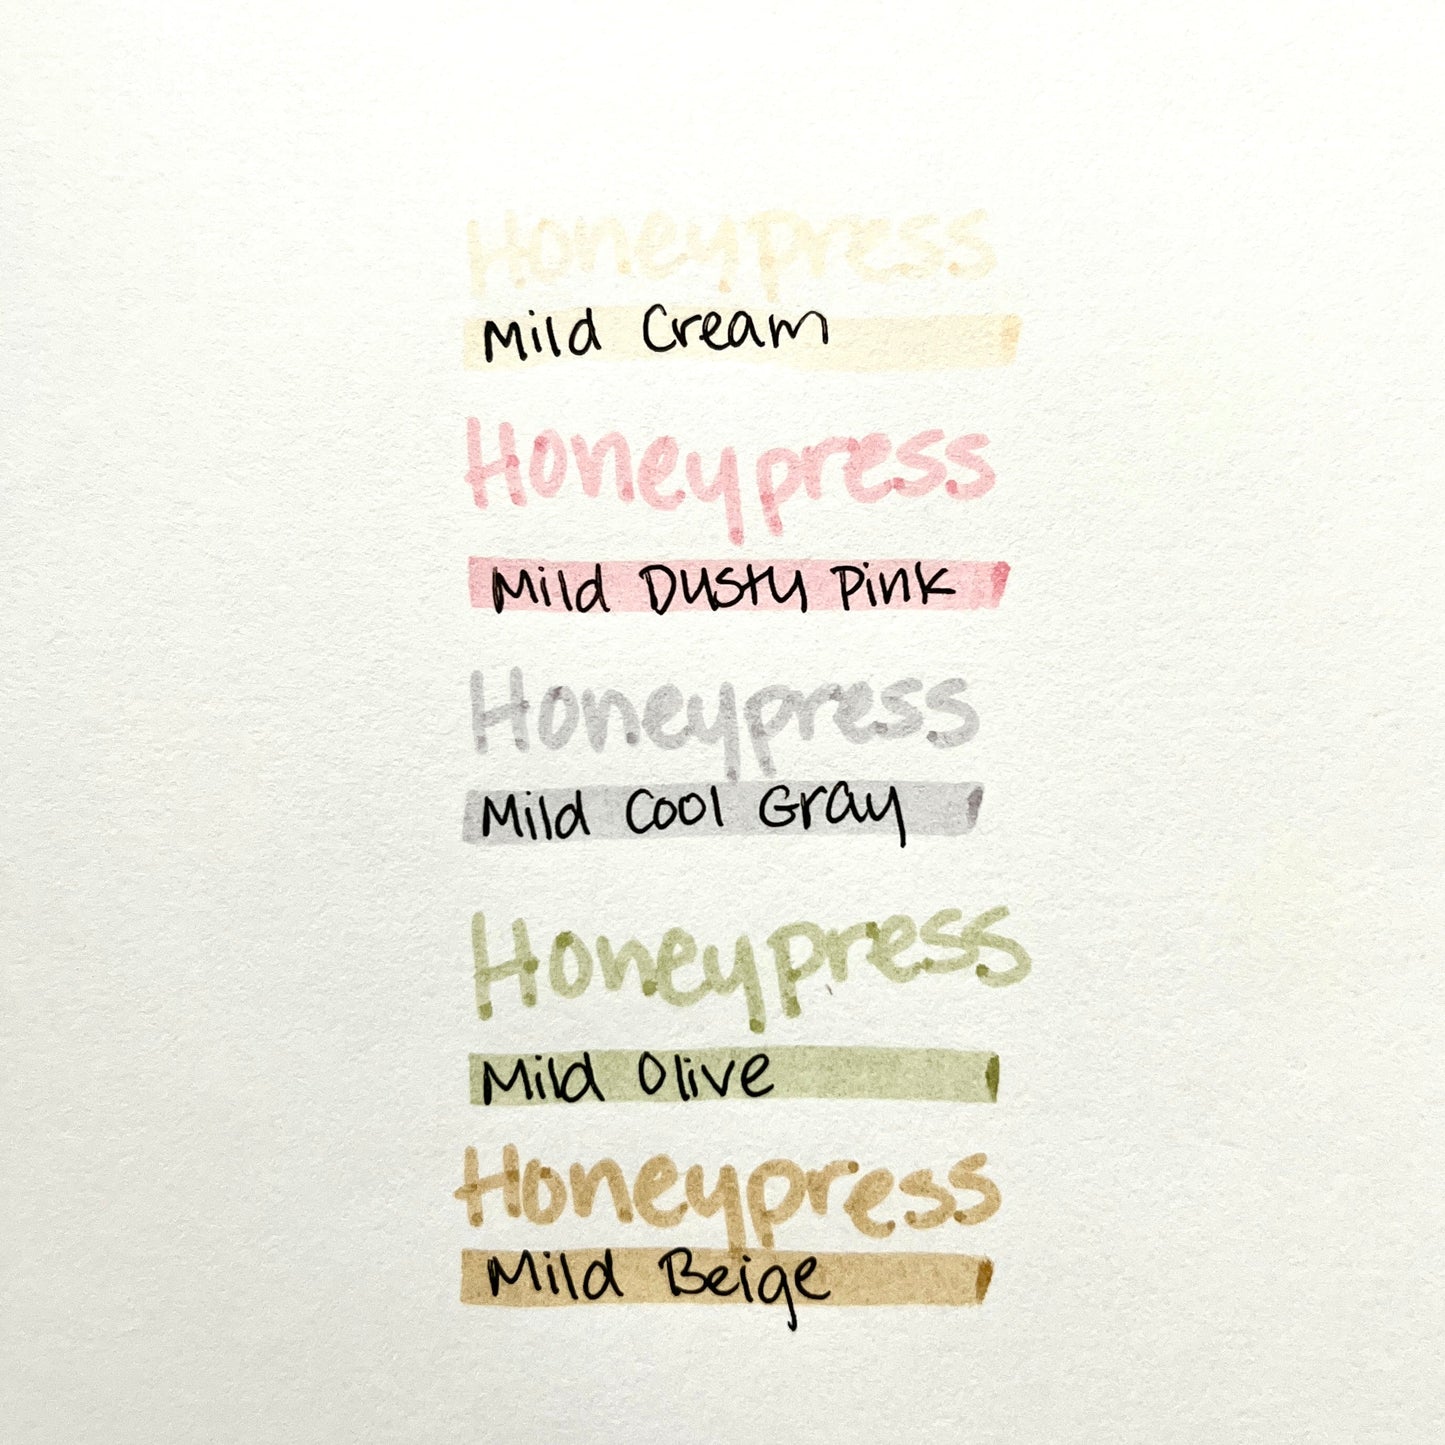 Honeypress
Mild Cream
Honeypress
Mild Dusty Pink
Honeypress
Mild Cool Gray
Honeypress
Mild Olive
Honeypress
Mild Beige